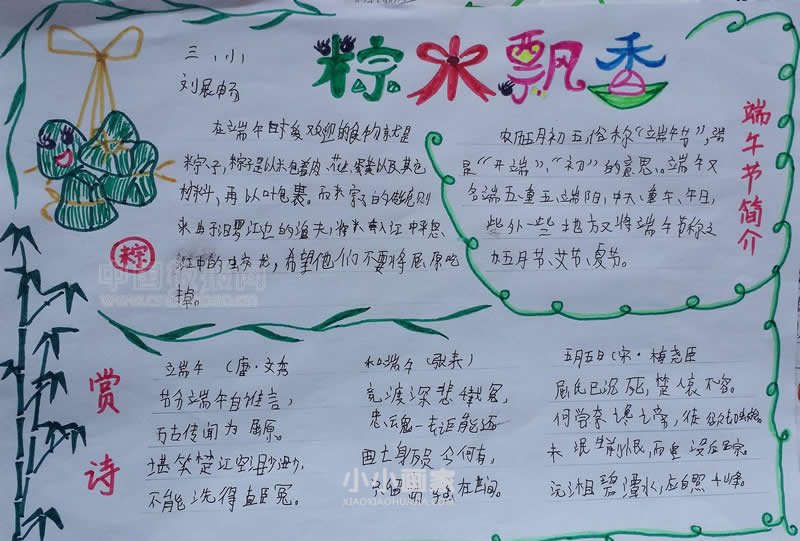 粽米飘香
三(小)
刘展畅
在端午日最欢迎的食物就是
粽子,粽子是以米包着肉、花生、蛋黄以及其它
材料,再以叶包裹。而来
来自于汨罗江边的渔夫,将米丢入江中平息
江中的,希望他们不要将屈原吃
掉。
粽
端午节简介
农历五月初五,俗称"端午节",端
是"开端"、"初"的意思。端午又
名端五、重五、端阳、中天、重午、午日,
些外一些地方又将端午节称之
为五月节、艾节、夏节。
赏诗
端午(唐·文秀
节分端午自谁言,
万古传闻为屈原。
堪笑楚江空渺渺,
不能洗得直臣冤。
和端午(张耒)
竞渡深悲千载冤,
忠魂一去讵能还
国亡身殒今何有,
只留离骚在世间。
五月五日(宋·梅尧臣
屈氏已沉死,楚人哀不容。
何尝奈谗谤,徒欲却蛟龙。
未泯生前恨,而追没后踪。
沅湘碧潭水,应自照千峰。
中国
www.
小小画家
XIAOXIAOHUAJIA.COM